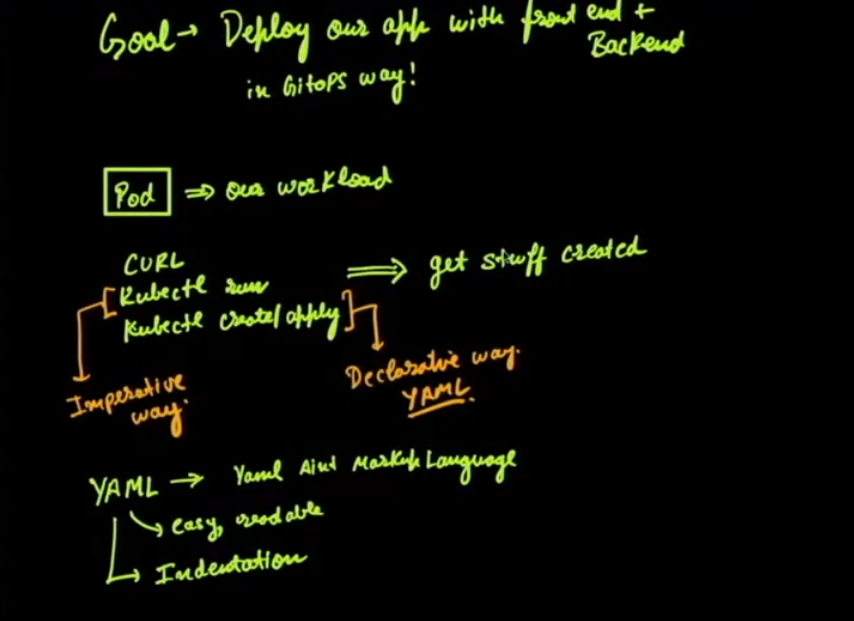 Goal → Deploy our app with front end +
Backend
in GitOPS way!
Pod ⇒ our workload
CURL
Kubectl run
Kubectl create/apply
⇒ get stuff created
Imperative
way.
Declarative way.
YAML.
YAML → Yaml Aint Markup Language
easy, readable
Indentation